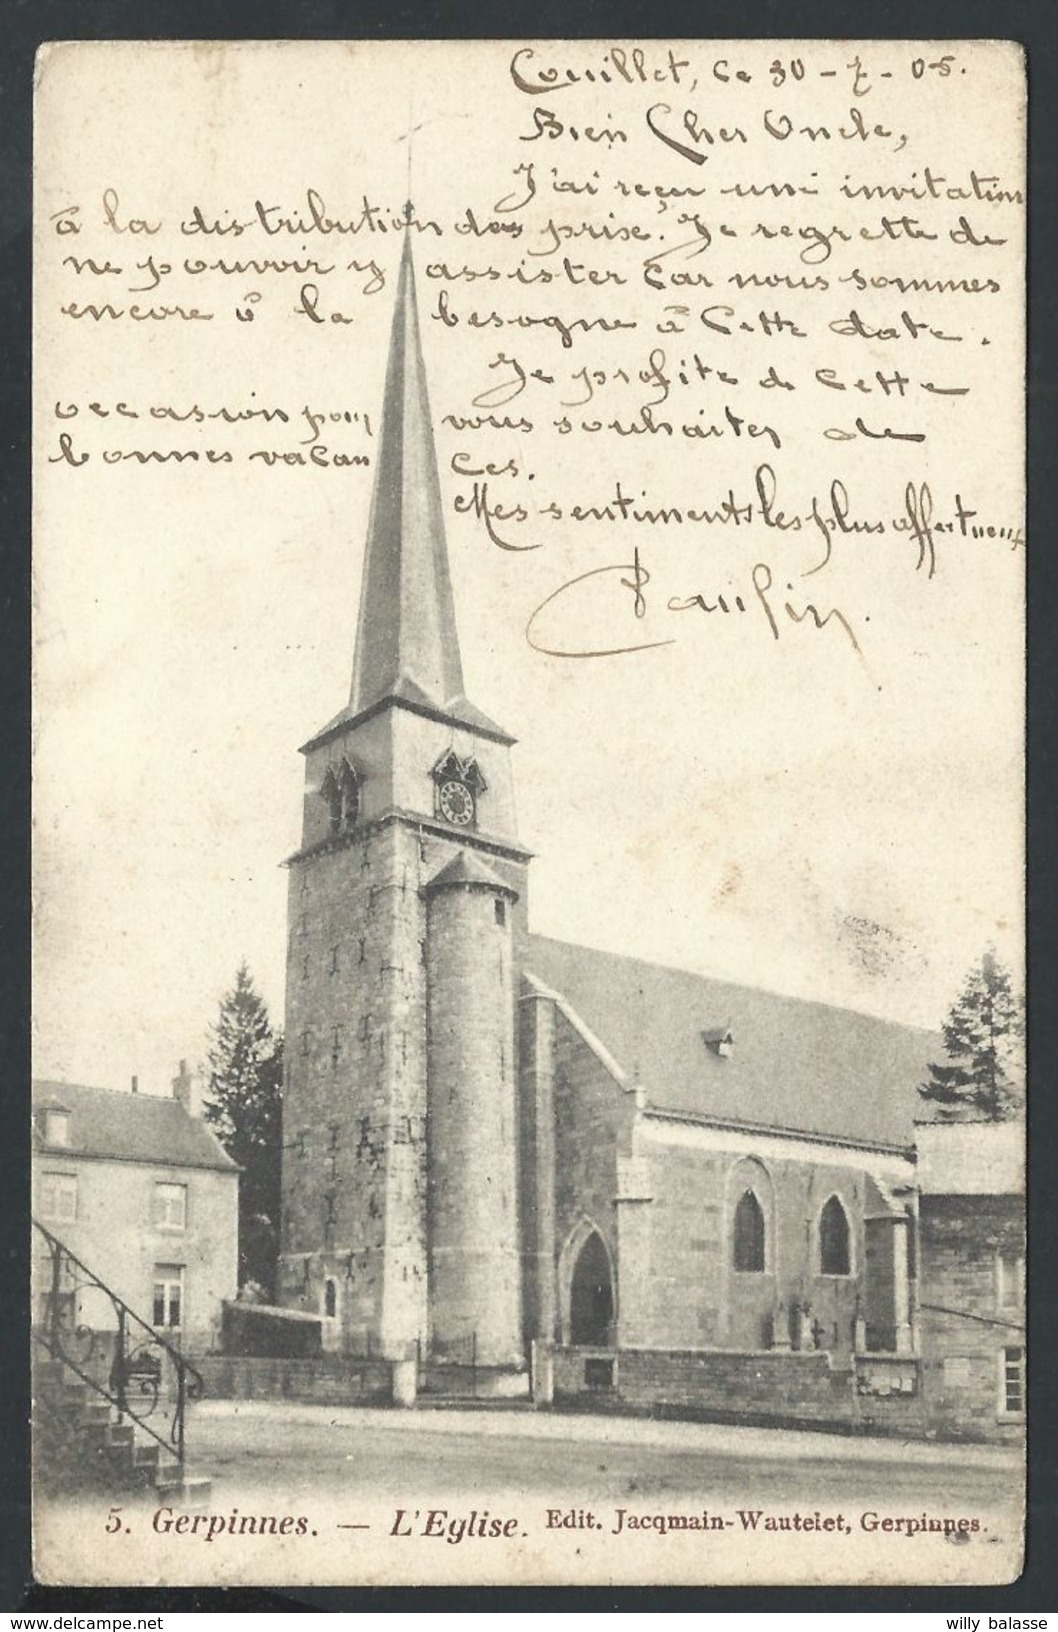 Couillet, ce 30-7-05.
Bien Cher Oncle,
J'ai reçu une invitation
à la distribution des prix. Je regrette de
ne pouvoir y assister car nous sommes
encore à la besogne à cette date.
Je profite de cette
occasion pour vous souhaiter de
bonnes vacances.
Mes sentiments les plus affectueux
5. Gerpinnes. — L'Eglise. Edit. Jacqmain-Wautelet, Gerpinnes.
willy balasse